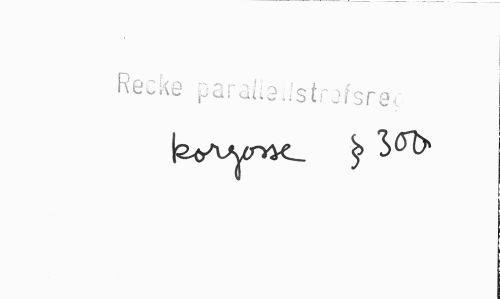 Recke parallellstrofsreg
korgosse § 300